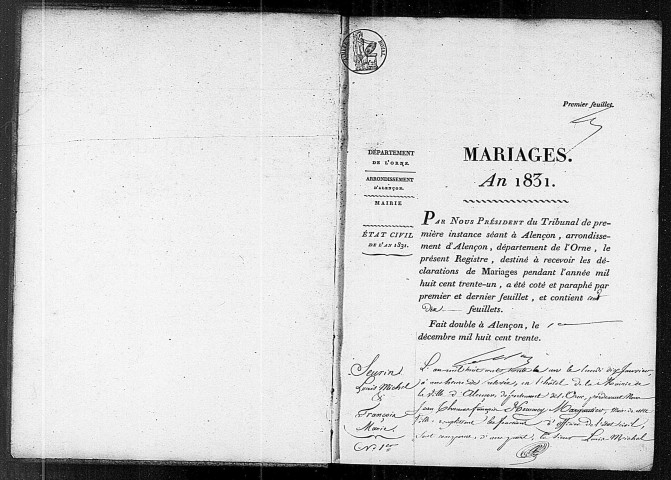 Premier feuillet.
DÉPARTEMENT
DE L'ORNE.
ARRONDISSEMENT
D'ALENÇON.
MAIRIE
ÉTAT CIVIL
DE L'AN 1831.
MARIAGES.
An 1831.
PAR NOUS PRÉSIDENT du Tribunal de pre-
mière instance séant à Alençon, arrondisse-
ment d'Alençon, département de l'Orne, le
présent Registre, destiné à recevoir les dé-
clarations de Mariages pendant l'année mil
huit cent trente-un, a été coté et paraphé par
premier et dernier feuillet, et contient cent
dix feuillets.
Fait double à Alençon, le 1er
décembre mil huit cent trente.
Seurin
Louis Michel
&
François
Marie
N.° 1er
L'an mil huit cent trente un le lundi dix janvier
à heures de relevée, en l'hôtel de la Mairie de
la Ville d'Alençon département de l'Orne, pardevant Nous
Jean
Ville, remplissant les fonctions d'officier de l'état civil,
sont comparus, d'une part, le sieur Louis Michel